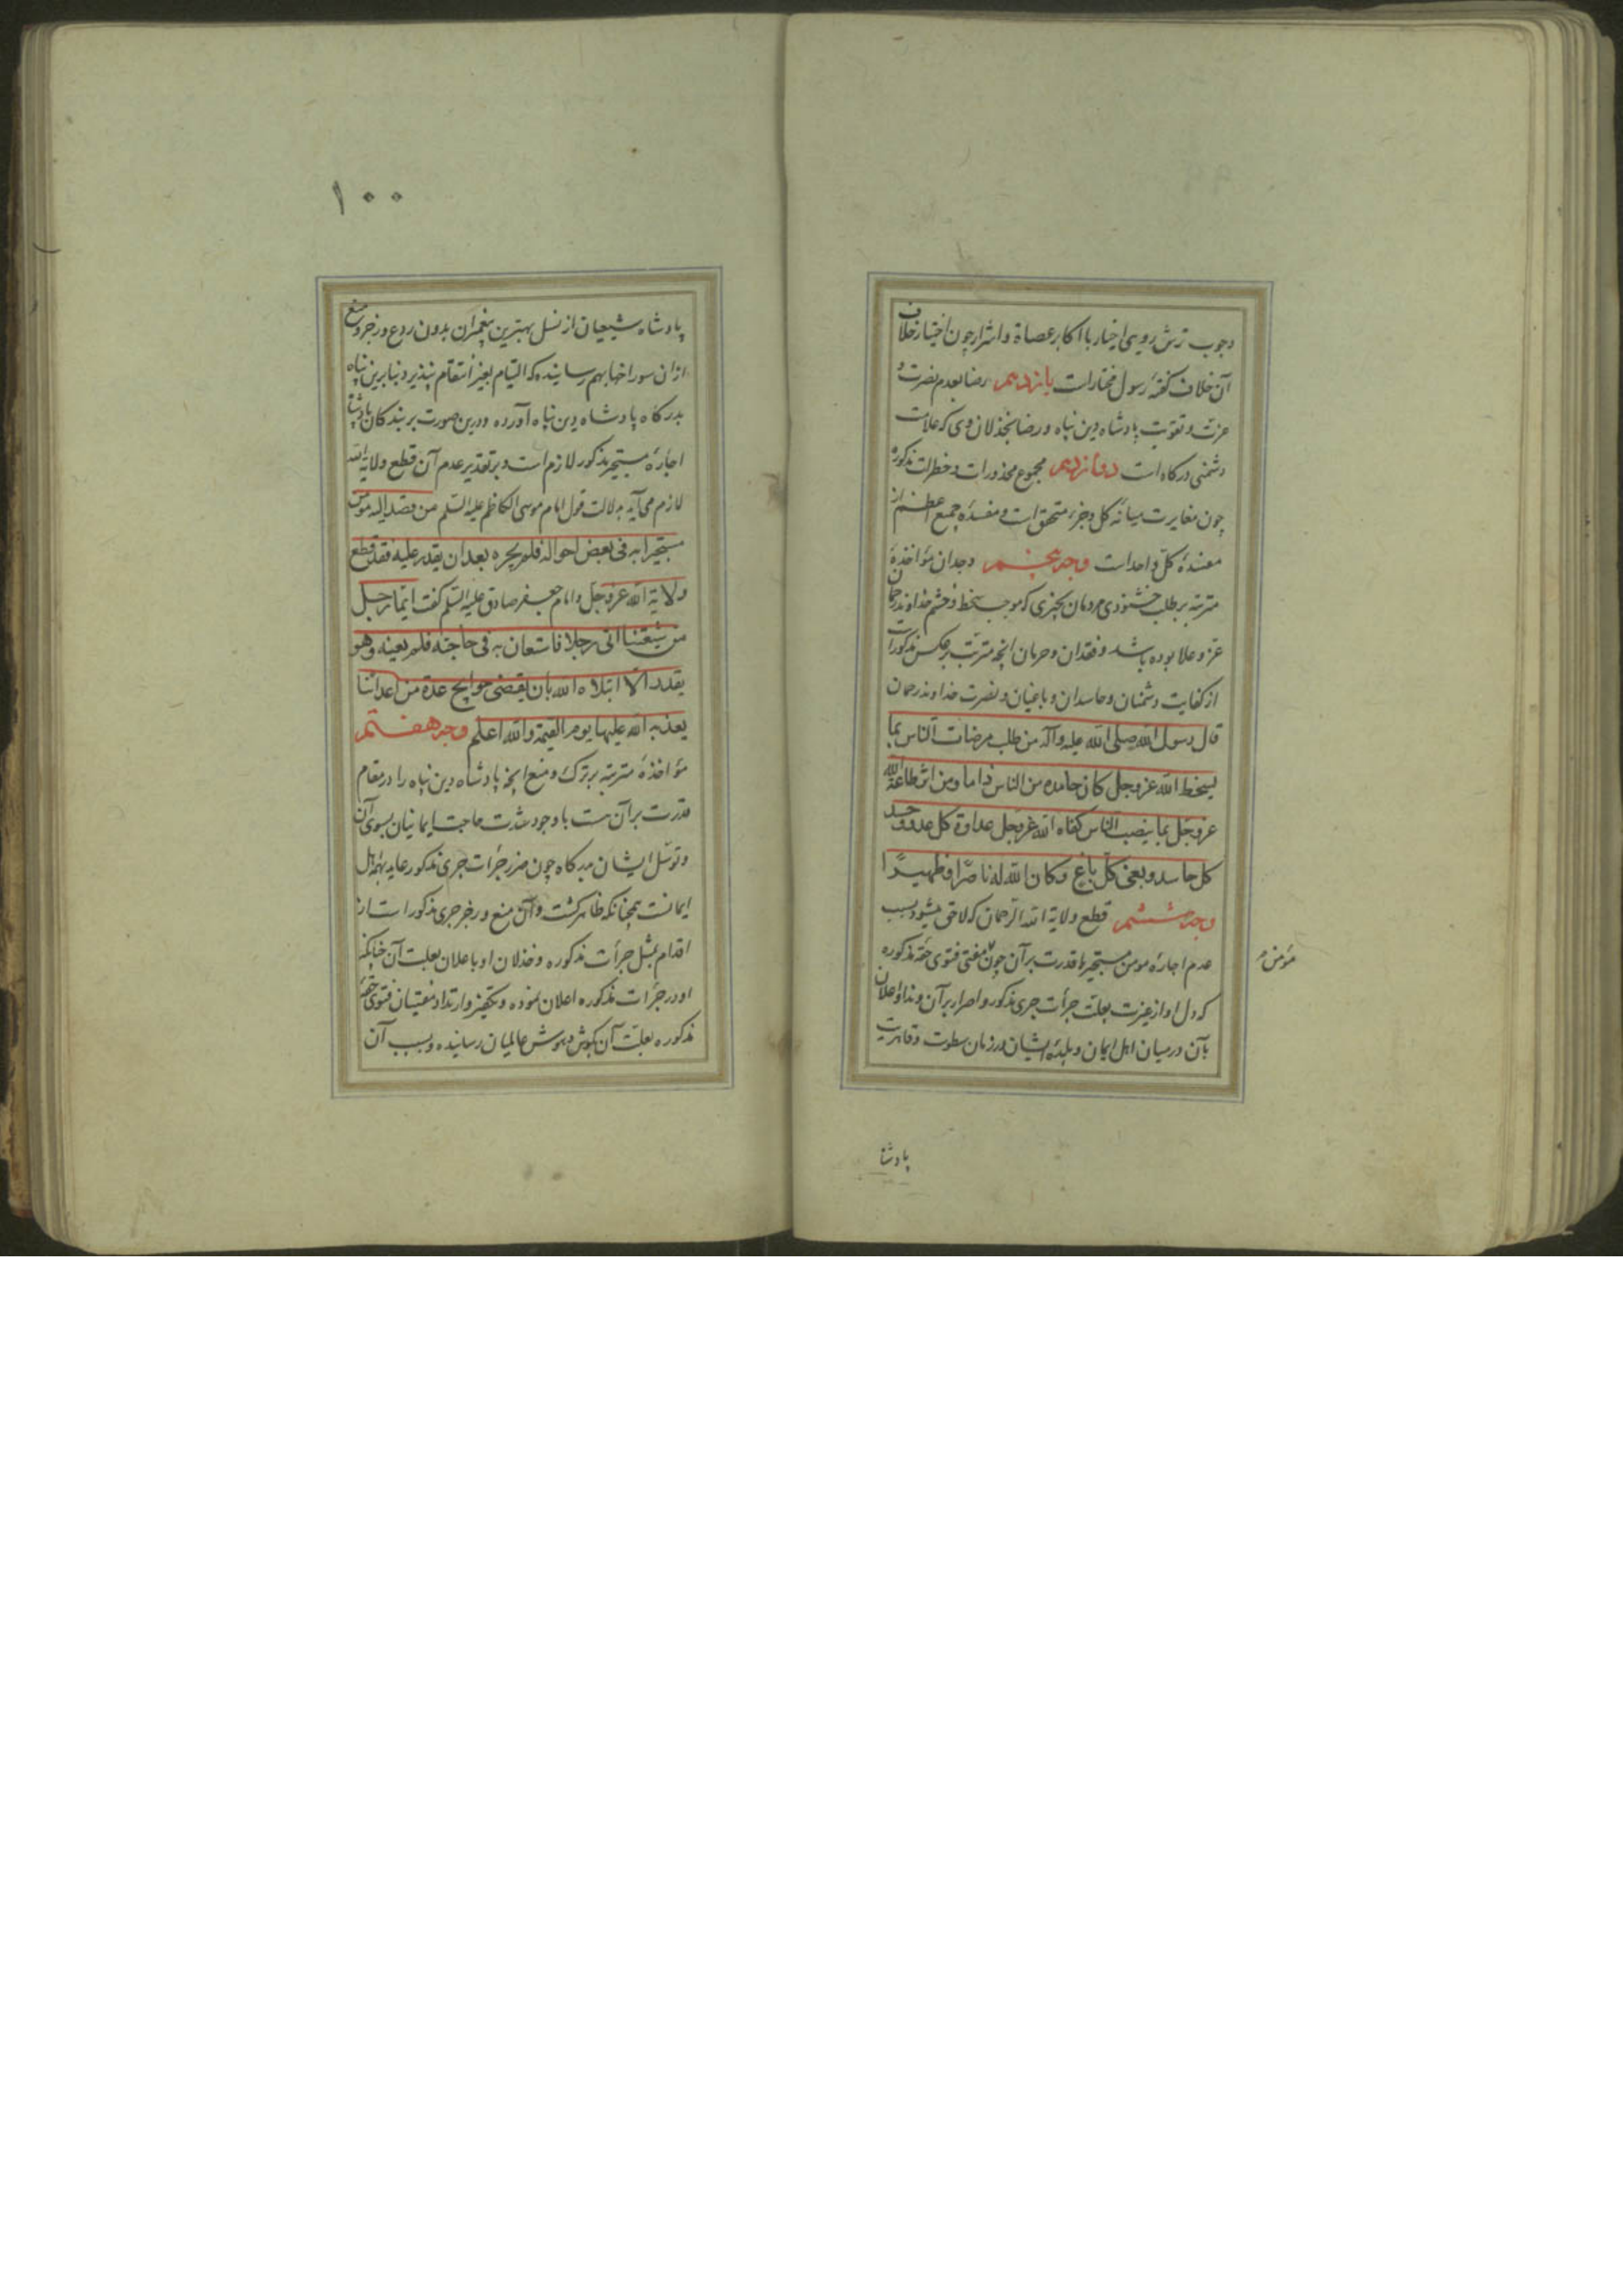 وجوب ترش رویی اخیار با اکابر عصاة و اشرار چون اختیار خلاف
آن خلاف گفتهٔ رسول مختارات یازدهم رضا بعدم نصرت و
عزت و تقویت پادشاه دین پناه و رضا بخذلان وی که علامت
دشمنی درکاه است دوازدهم مجموع محذورات و خطرات مذکوره
چون مغایرت میانهٔ کل و جزء متحقق است و مفسدهٔ جمیع اعظم از
مفسدهٔ کل واحد است وجه پنجم وجدان مؤاخذهٔ
مترتبه بر طلب خشنودی مردمان بچیزی که موجب سخط و خشم خداوند رحمان
عز و علا بوده باشد و فقدان و حرمان انچه مترتب بر عکس مذکور است
از کفایت دشمنان و حاسدان و باغیان و نصرت خداوند رحمان
قال رسول الله صلی الله علیه وآله من طلب مرضات الناس بما
یسخط الله عز وجل کان حامده من الناس ذاما ومن اثر طاعة الله
عز وجل بما یغضب الناس کفاه الله عز وجل عداوة کل عدو و حسد
کل حاسد و بغی کل باغ وکان الله له ناصرًا و ظهیرًا
وجه ششم قطع ولایة الله الرحمان که لاحق میشود بسبب
عدم اجارهٔ مومن مستجیر با قدرت بر آن چون مفتی فتوی حقهٔ مذکوره
مؤمن
که دل او از غیرت بعلت جرأت جری مذکور و اصرار بر آن و ندا و اعلان
بآن درمیان اهل ایمان و بلدهٔ ایشان در زمان سطوت و قاهریت
پادشا
۱۰۰
پادشاه شیعیان از نسل بهترین پیغمبران بدون ردع و زجر و منع
از ان سوراخها بهم رسانیده که التیام بغیر انتقام نپذیرد بنابرین پناه
بدرکاه پادشاه دین پناه آورده و درین صورت بر بندکان پادشاه
اجارهٔ مستجیر مذکور لازم است و بر تقدیر عدم آن قطع ولایة الله
لازم می آید بدلالت قول امام موسی الکاظم علیه السلم من قصد الیه مؤمن
مستجیرا به فی بعض احواله فلم یجره بعد ان یقدر علیه فقد قطع
ولایة الله عز وجل و امام جعفر صادق علیه السلم کفت ایما رجل
من شیعتنا اتی رجلا فاستعان به فی حاجته فلم یعینه وهو
یقدر الا ابتلاه الله بان یقضی حوایج عدة من اعدائنا
یعذبه الله علیها یوم القیمة والله اعلم وجه هفتم
مؤاخذهٔ مترتبه بر ترک و منع انچه پادشاه دین پناه را در مقام
قدرت بر آن هست با وجود شدت حاجت ایمانیان بسوی آن
و توسل ایشان بدرکاه چون ضرر جرأت جری مذکور عاید بهمهٔ اهل
ایمانست چنانکه ظاهر کشت و آن منع و زجر جری مذکور است از
اقدام بمثل جرأت مذکوره و خذلان او باعلان بعلت آن چنانکه
او در جرأت مذکوره اعلان نموده و تکفیر و ارتداد مفتیان فتوی حقهٔ
مذکوره بعلت آن بکوش و هوش عالمیان رسانیده و بسبب آن